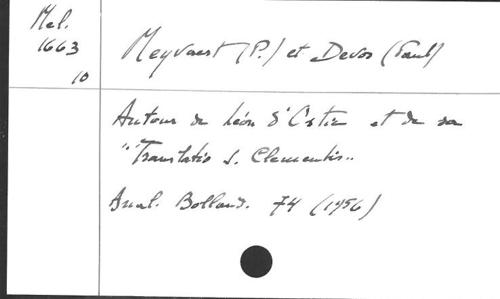 Mel.
1663
10
Meyvaert (P.) et Devos (Paul)
Autour de Léon d'Ostie et de sa
"Translatio S. Clementis"
Anal. Bolland. 74 (1956)